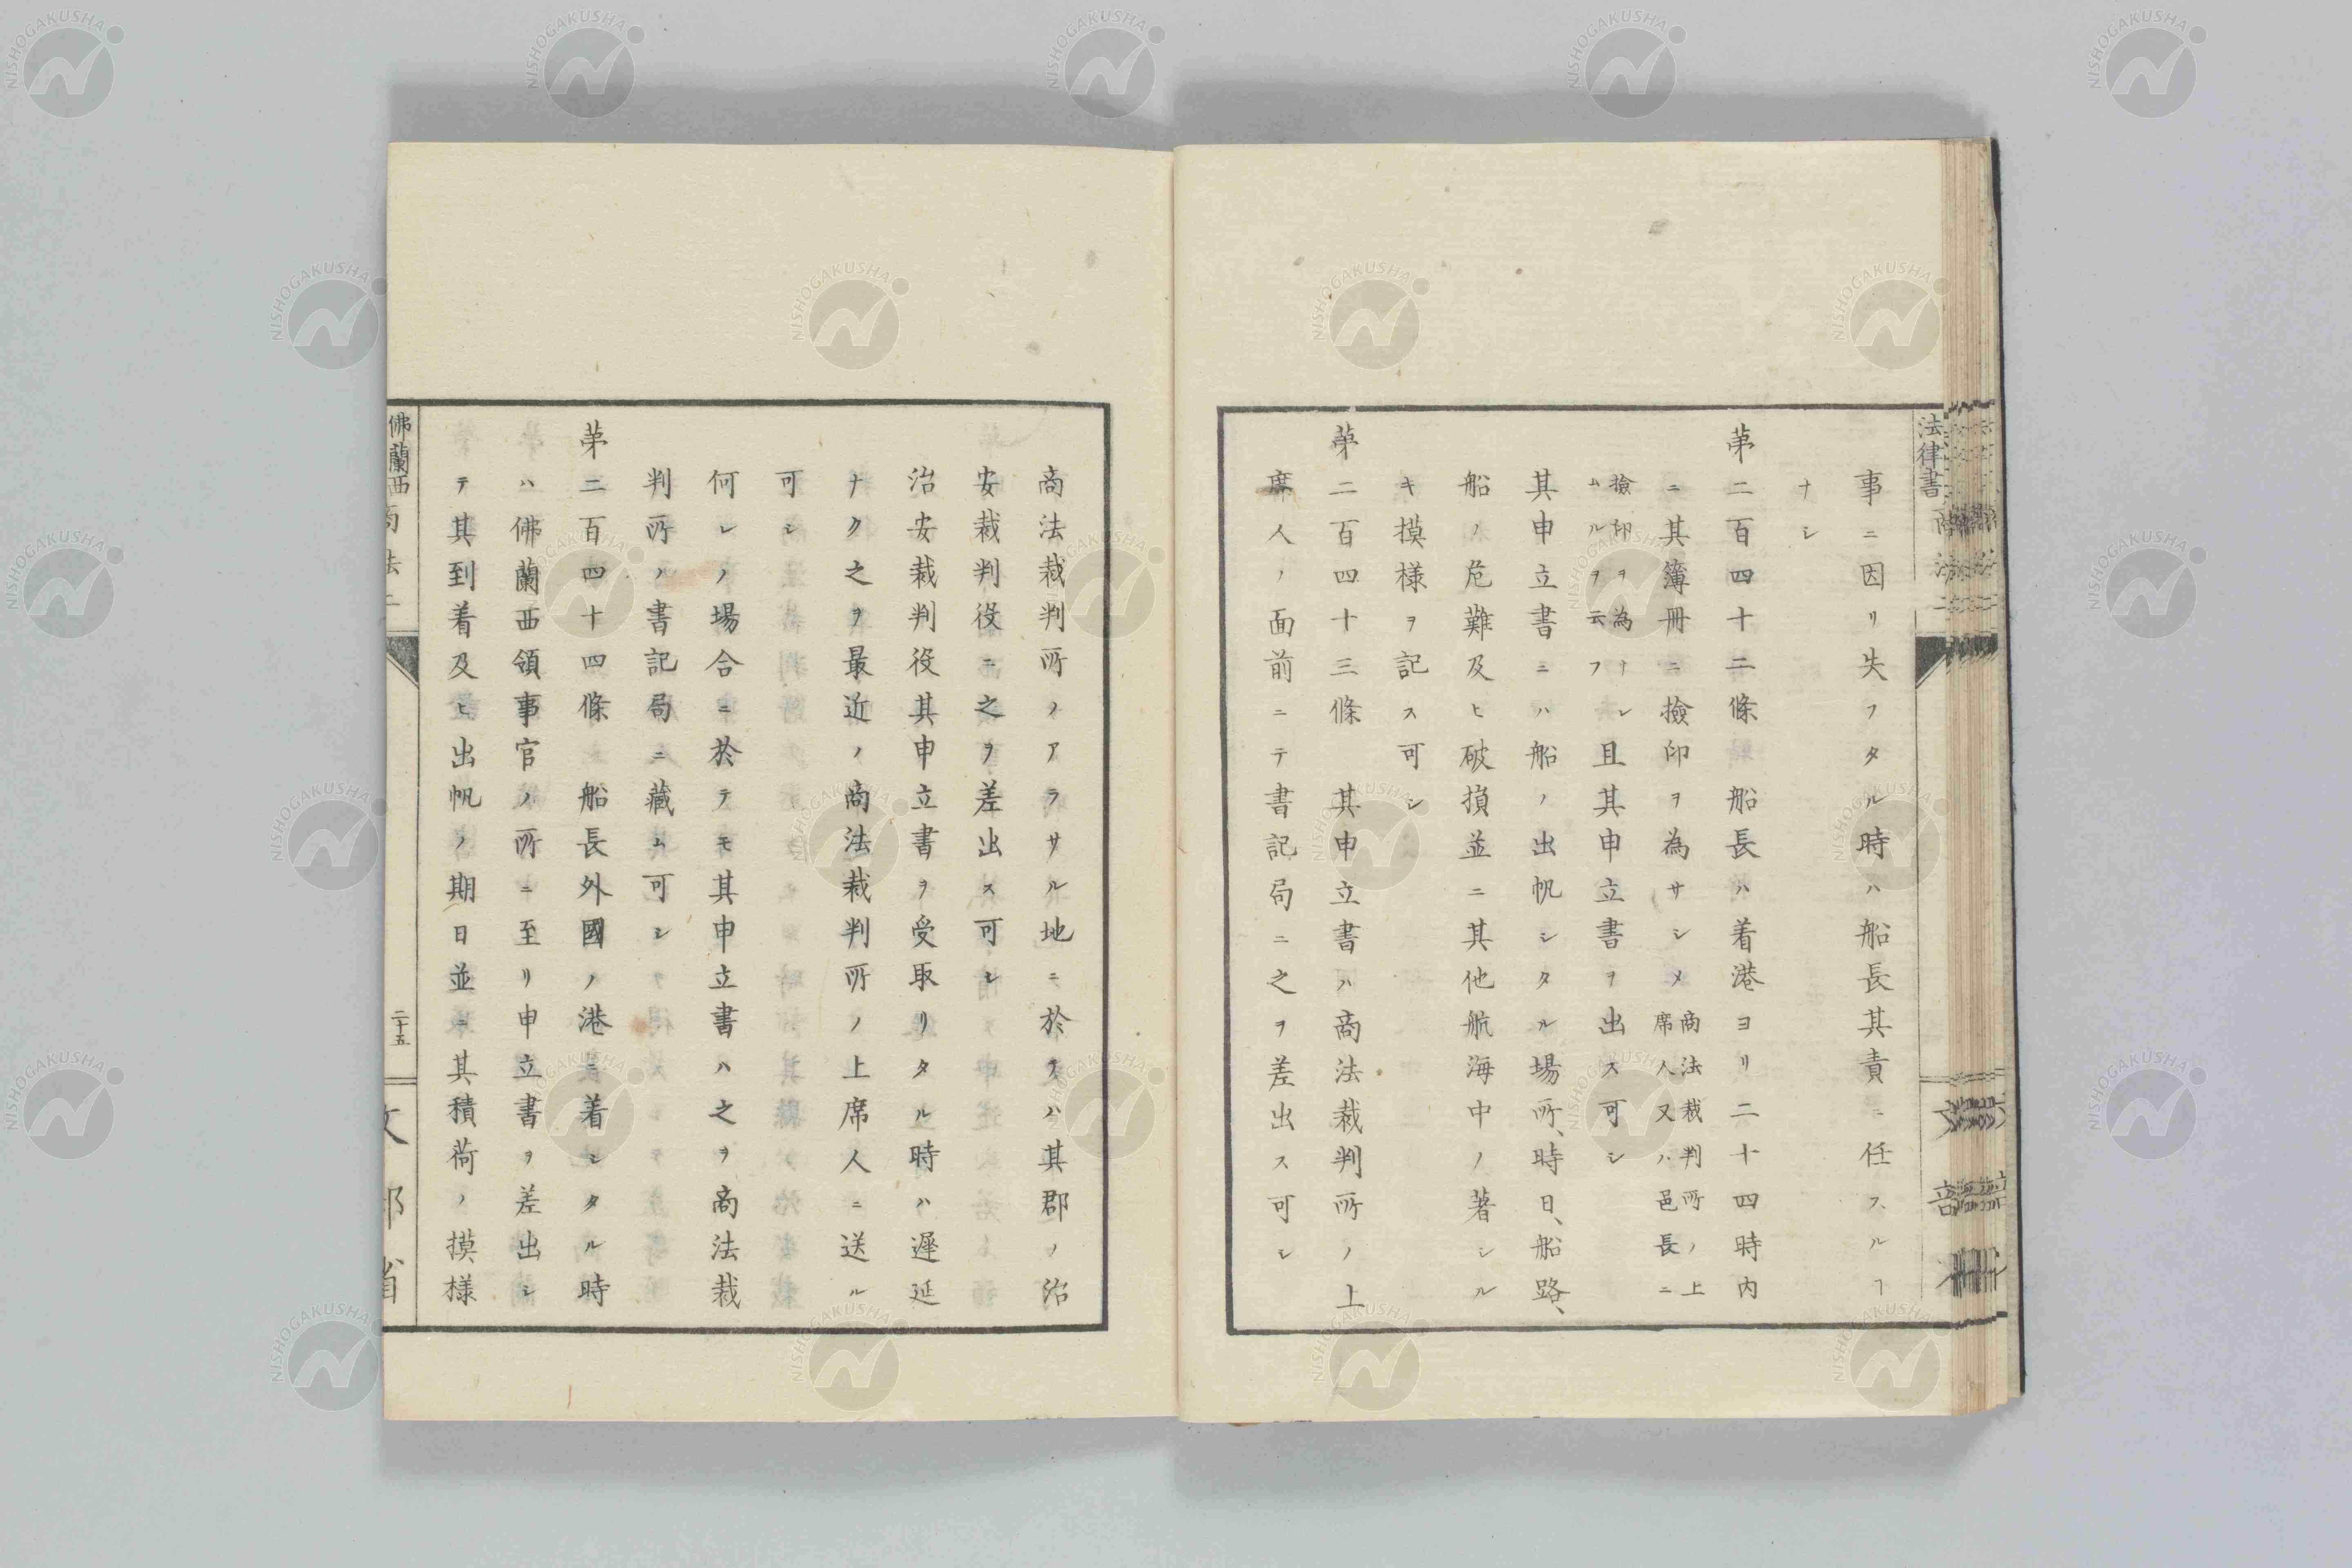 法律書
事ニ因リ失フタル時ハ船長其責ニ任スルヿ
ナシ
苐二百四十二條 船長ハ着港ヨリ二十四時内
ニ其簿冊ニ撿印ヲ為サシメ商法裁判所ノ上席人又ハ邑長ニ
撿印ヲ為ナシムルヲ云フ且其申立書ヲ出ス可シ
其申立書ニハ船ノ出帆シタル場所、時日、船路、
船ノ危難及ヒ破損並ニ其他航海中ノ著シル
キ摸様ヲ記ス可シ
苐二百四十三條 其申立書ハ商法裁判所ノ上
席人ノ面前ニテ書記局ニ之ヲ差出ス可シ
商法裁判所ノアラサル地ニ於テハ其郡ノ治
安裁判役ニ之ヲ差出ス可シ
治安裁判役其申立書ヲ受取リタル時ハ遲延
ナク之ヲ最近ノ商法裁判所ノ上席人ニ送ル
可シ
何レノ場合ニ於テモ其申立書ハ之ヲ商法裁
判所ノ書記局ニ藏ム可シ
苐二百四十四條 船長外國ノ港ニ着シタル時
ハ佛蘭西領事官ノ所ニ至リ申立書ヲ差出シ
テ其到着及ヒ出帆ノ期日並ニ其積荷ノ摸様
佛蘭西商法
二十五
文部省
NISHOGAKUSHA